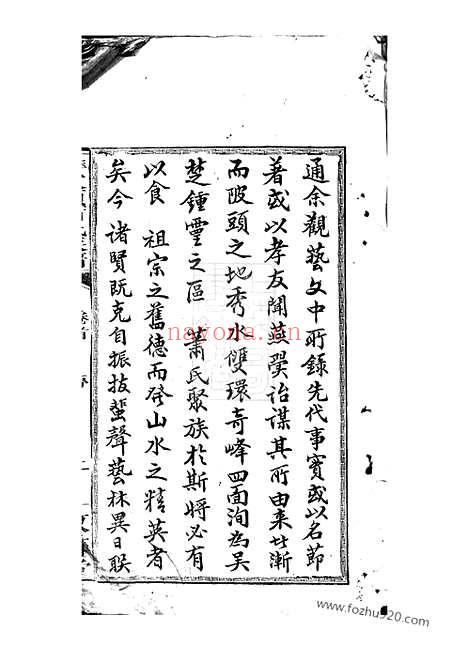 通余觀藝文中所錄先代事實或以名節
著或以孝友聞燕翼詒謀其所由来者漸
而陂頭之地秀水雙環奇峰四面洵為吴
楚鍾靈之區 蕭氏聚族於斯將必有
以食 祖宗之舊德而發山水之精英者
矣今 諸賢既克自振拔蜚聲藝林異日联
卷首
nayona.cn
www.fozhu920.com